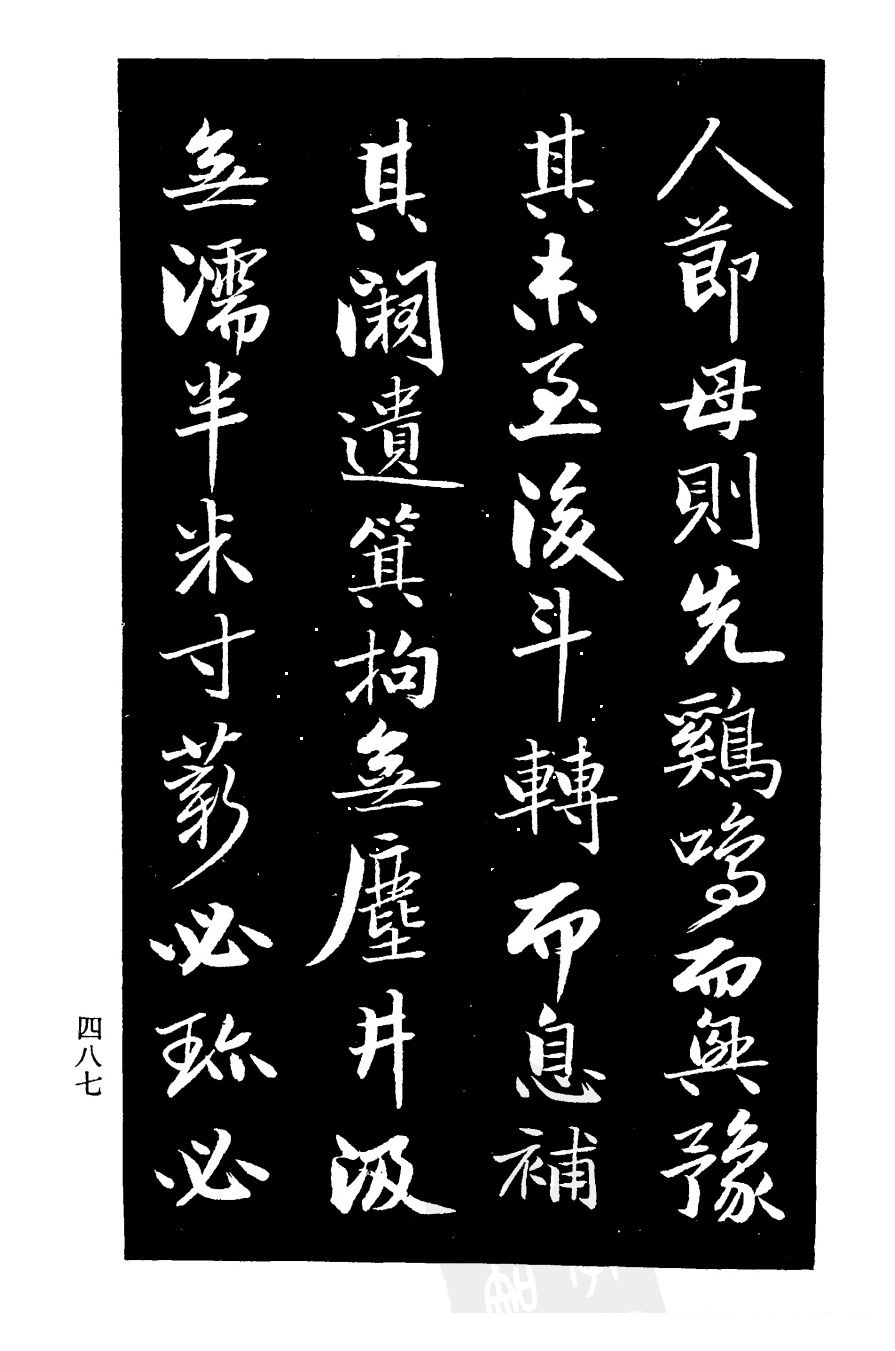 人節母則先鷄鳴而興豫
其未至後斗轉而息補
其闕遺箕拘無塵井汲
無濡半米寸薪必珎必
四八七